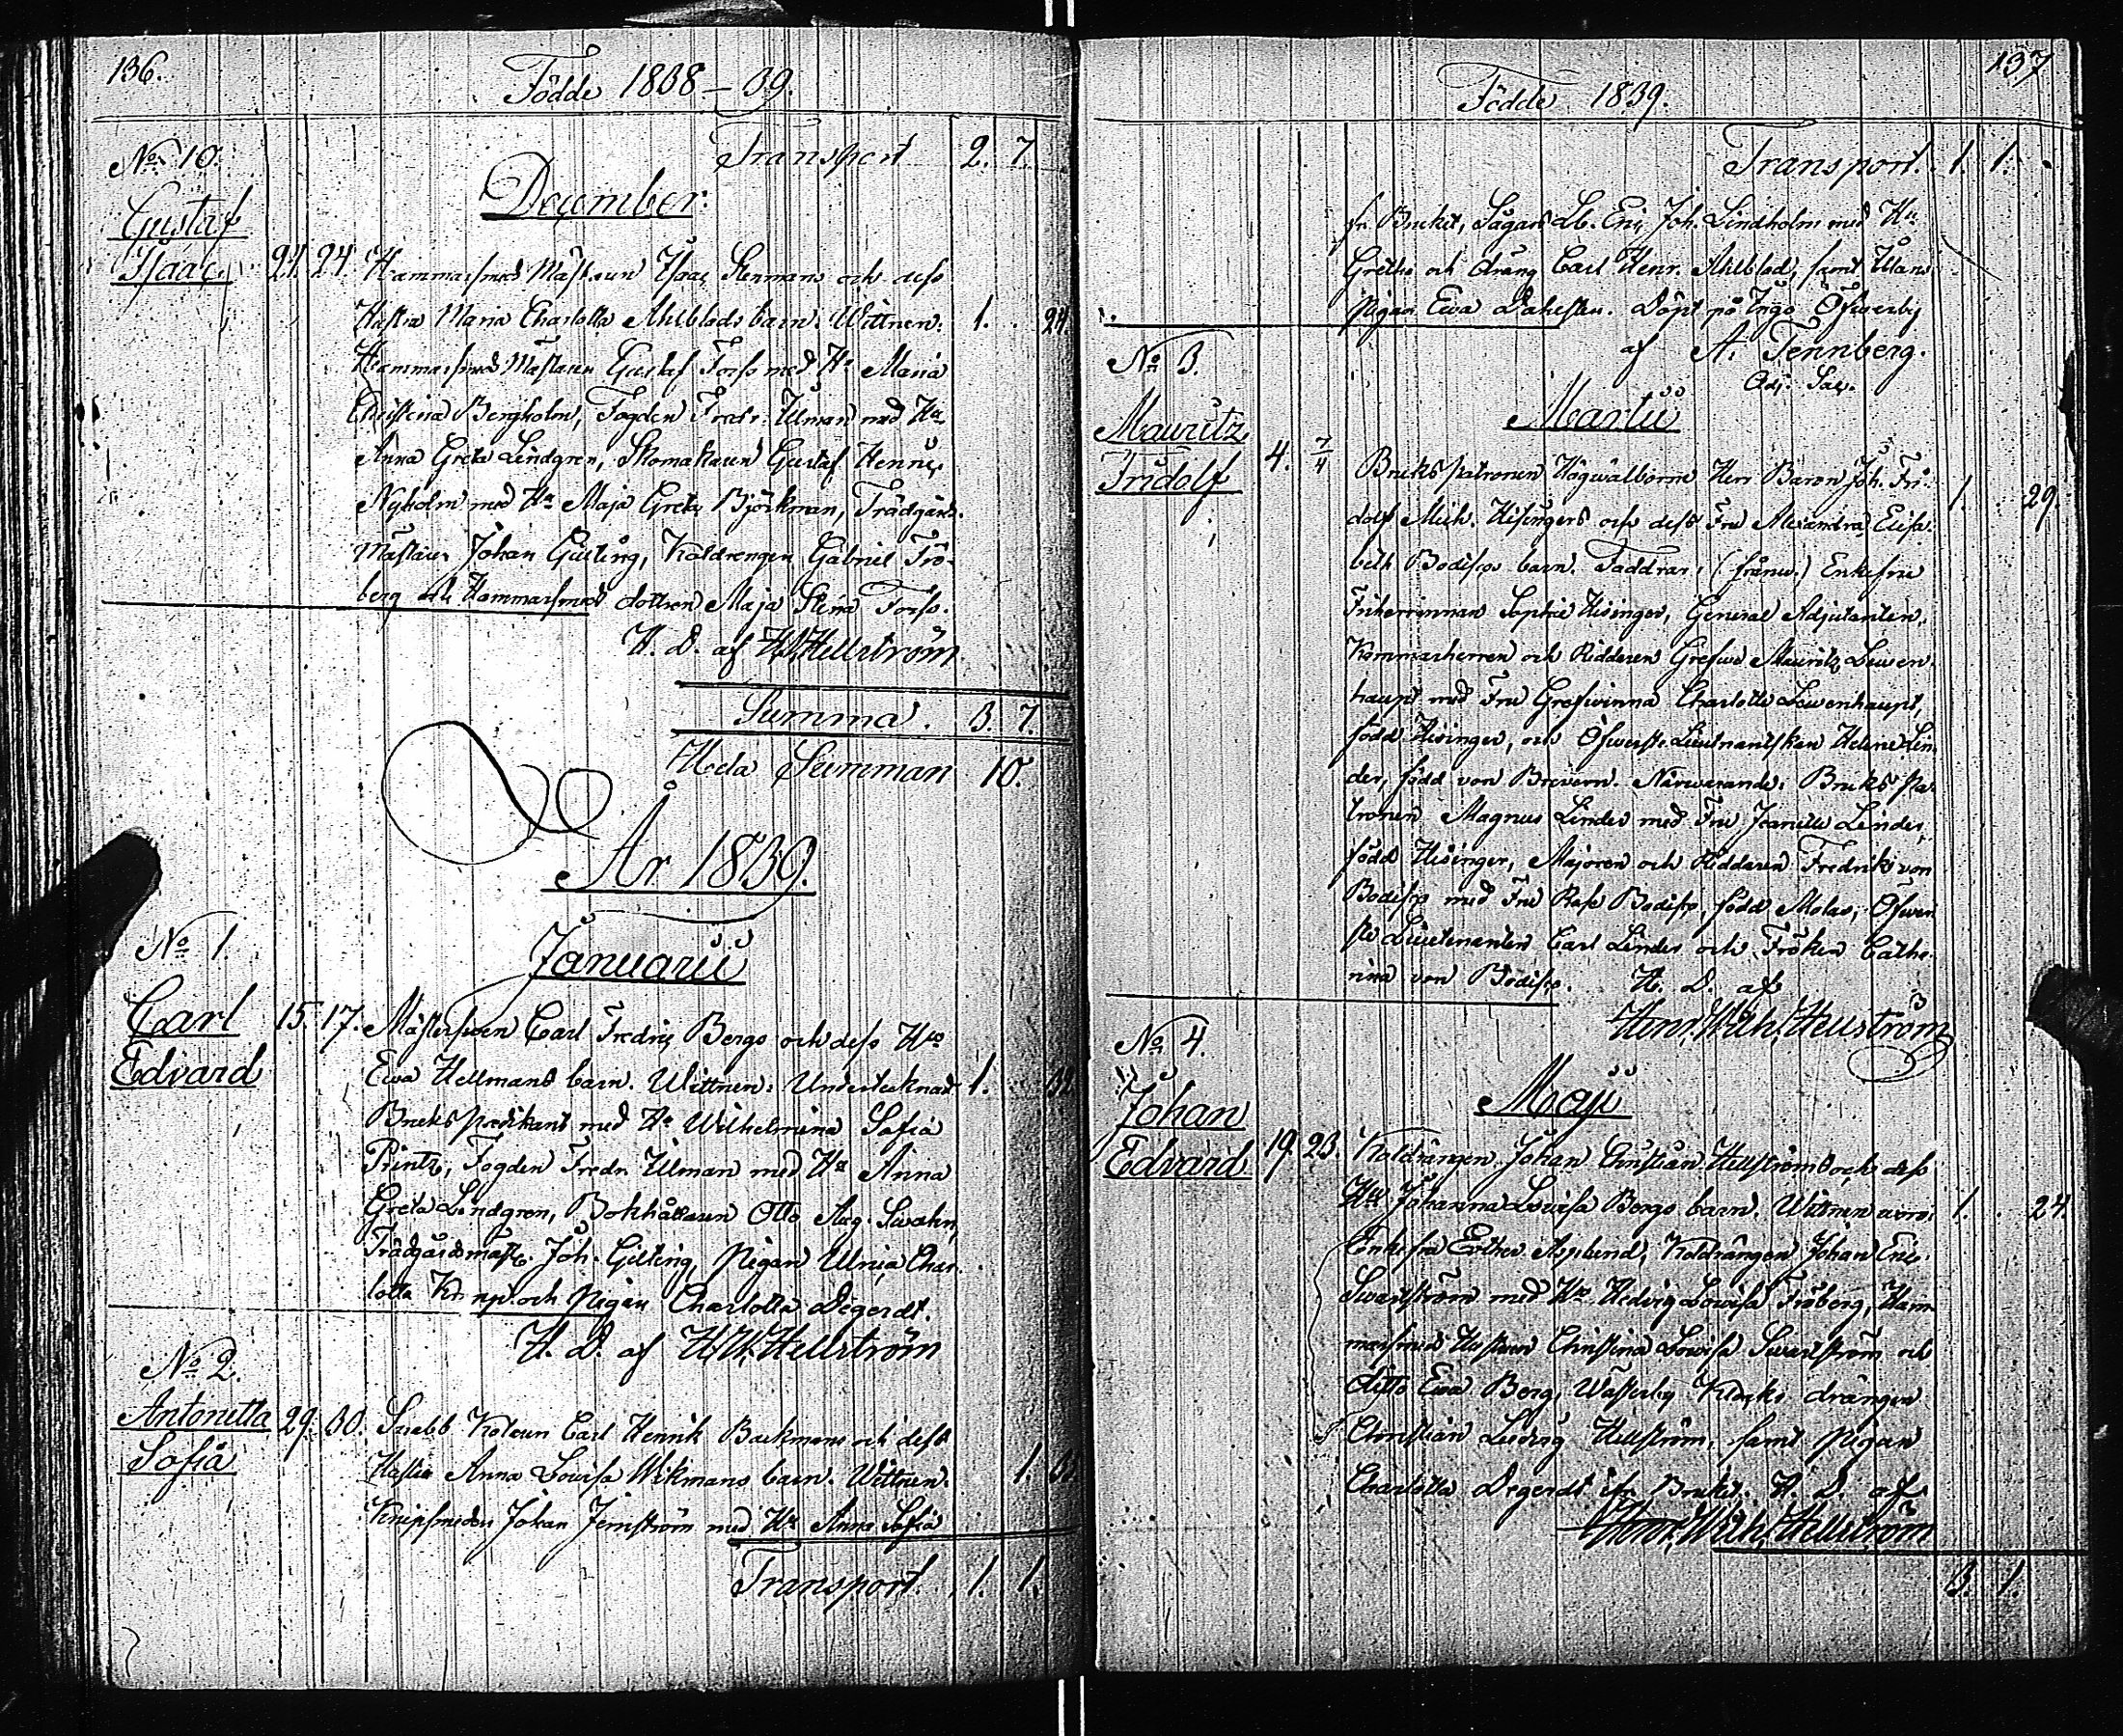 136.
Födde 1838–39.
Transport 2. 7.
No 10.
December.
Gustaf
Isaac 21. 24 Hammarsmeds Mästaren Isaac Stenmans och dess
Hustru Maria Charlotta Ahlblads barn. Wittnen: 1. 24.
Hammarsmeds Mästaren Gustaf Forss med Hu Maria
Christina Bergholm, Fogden Fredr. Ulman med Hu
Anna Greta Lindgren, Skomakaren Gustaf Henric
Nyholm med Hu Maja Greta Björkman, Trädgårds
Mästaren Johan Gilting, Koldrengen Gabriel Frö-
berg och Hammarsmeds dottren Maja Stina Forss.
H. D. af H.W. Hellström
Summa. 3. 7.
Hela Summan 10.
År 1839.
Januarii
No 1
Carl 15. 17. Mästersven Carl Fredric Bergs och dess Hu
Edvard Ewa Hellmans barn. Wittnen: Undertecknad 1.
Bruks predikant med Hu Wilhelmina Sofia
Printz, Fogden Fredr. Ulman med Hu Anna
Greta Lindgren, Bokhållaren Otto Aug. Swahn,
Trädgårdsmäst. Joh. Gilting, Pigan Ulrica Char-
lotta och Pigan Charlotta Degerdt.
H. D. af H.W. Hellström
No 2.
Antonetta 29. 30. Kolaren Carl Henrik Backmans och dess
Sofia Hustru Anna Lowisa Wikmans barn. Wittnen. 1.
Knipsmeden Johan Jernström med Hu Anna Sofia
Transport 1. 1.
137
Födde 1839.
Transport. 1. 1.
fr. Bruket, Sågare Lb. Eric Joh. Lindholm med Hu
Greta och dräng Carl Henr. Ahlblad, samt
pigan Ewa Dahlsten. Döpt på Ingo Öfwerby
af A. Tennberg.
Adj. Sac.
No 3.
Martii
Mauritz
Fridolf 4. 7/4 Brukspatronen Högwälborne Herr Baron Joh. Fri-
dolf Mich. Hisingers och dess Fru Alexandra Elisa- 1. 29.
beth Bodisco barn. Faddrar: (frånw.) Enkefru
Friherrinnan Sophie Hisinger, General Adjutanten,
Kammarherren och Riddaren Grefwe Mauritz Lewen-
haupt med Fru Grefwinna Charlotte Lewenhaupt,
född Hisinger, och Öfwerste Lieutnantskan Helene Lin-
der, född von Brevern. Närwarande: Bruks Pa-
tronen Magnus Linder med Fru Jeanette Linder,
född Hisinger, Majoren och Riddaren Fredrik von
Bodisco med Fru Rose Bodisco, född Molas, Öfwer-
ste Lieutenanten Carl Linder och Fröken Catha-
rina von Bodisco. H. D. af
Henr. Wilh. Hellström
No 4.
Maji
Johan
Edvard 19. 23. Koldrängen Johan Christian Hellströms och dess
Hu Johanna Lowisa Bergs barn. Wittnen woro: 1. 24.
Enkefru Esther Asplund, Koldrängen Johan Eric
Swartström med Hu Hedvig Lowisa Fröberg, Ham-
marsmeds Hustrun Christina Lowisa Swartström och
ditto Ewa Berg, Wästerby drängen
Christian Ludvig Hellström, samt Pigan
Charlotta Degerdt ifr. Bruket. H. D. af
Henr. Wilh. Hellström
3. 1.